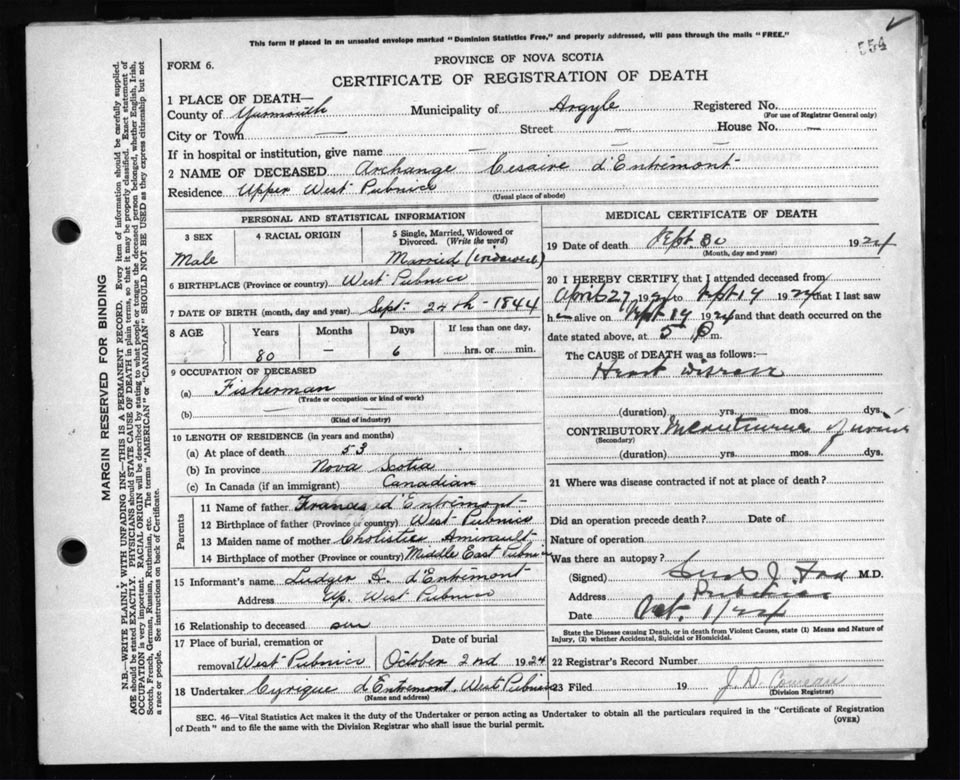 This form if placed in an unsealed envelope marked "Dominion Statistics Free," and properly addressed, will pass through the mails "FREE."
554
PROVINCE OF NOVA SCOTIA
FORM 6.
CERTIFICATE OF REGISTRATION OF DEATH
1 PLACE OF DEATH—
County of Yarmouth Municipality of Argyle Registered No.
(For use of Registrar General only)
City or Town — Street — House No. —
If in hospital or institution, give name —
2 NAME OF DECEASED Archange Cesaire d'Entremont
Residence Upper West Pubnico
(Usual place of abode)
PERSONAL AND STATISTICAL INFORMATION
3 SEX 4 RACIAL ORIGIN 5 Single, Married, Widowed or Divorced. (Write the word)
Male Married (widower)
6 BIRTHPLACE (Province or country) West Pubnico
7 DATE OF BIRTH (month, day and year) Sept. 24th - 1844
8 AGE Years Months Days If less than one day,
80 — 6 hrs. or min.
9 OCCUPATION OF DECEASED
(a) Fisherman
(Trade or occupation or kind of work)
(b) —
(Kind of industry)
10 LENGTH OF RESIDENCE (in years and months)
(a) At place of death 53
(b) In province Nova Scotia
(c) In Canada (if an immigrant) Canadian
Parents
11 Name of father Frances d'Entremont
12 Birthplace of father (Province or country) West Pubnico
13 Maiden name of mother Cholistie Amirault
14 Birthplace of mother (Province or country) Middle East Pubnico
15 Informant's name Ludger d'Entremont
Address Up. West Pubnico
16 Relationship to deceased son
17 Place of burial, cremation or removal West Pubnico
Date of burial October 2nd 1924
18 Undertaker Cyrique d'Entremont, West Pubnico
(Name and address)
MEDICAL CERTIFICATE OF DEATH
19 Date of death Sept. 30 1924
(Month, day and year)
20 I HEREBY CERTIFY that I attended deceased from
April 27 1924 to Sept 19 1924 that I last saw
h alive on Sept 19 1924 and that death occurred on the
date stated above, at 5 P m.
The CAUSE of DEATH was as follows:—
Heart Disease
(duration) yrs. mos. dys.
CONTRIBUTORY
(Secondary)
(duration) yrs. mos. dys.
21 Where was disease contracted if not at place of death?
Did an operation precede death? Date of
Nature of operation
Was there an autopsy?
(Signed) M.D.
Address Pubnico
Date Oct. 1/24
State the Disease causing Death, or in death from Violent Causes, state (1) Means and Nature of Injury, (2) whether Accidental, Suicidal or Homicidal.
22 Registrar's Record Number
23 Filed 19 J. D. Comeau
(Division Registrar)
SEC. 46—Vital Statistics Act makes it the duty of the Undertaker or person acting as Undertaker to obtain all the particulars required in the "Certificate of Registration
of Death" and to file the same with the Division Registrar who shall issue the burial permit.
(OVER)
MARGIN RESERVED FOR BINDING
N.B.—WRITE PLAINLY WITH UNFADING INK—THIS IS A PERMANENT RECORD. Every item of information should be carefully supplied.
AGE should be stated EXACTLY. PHYSICIANS should STATE CAUSE OF DEATH in plain terms, so that it may be properly classified. Exact statement of
OCCUPATION is very important. RACIAL ORIGIN will be described by stating to what people or tongue the deceased person belonged, whether English, Irish,
Scotch, French, German, Russian, Ruthenian, etc. The terms "AMERICAN" or "CANADIAN" SHOULD NOT BE USED as they express citizenship but not
a race or people. See instructions on back of Certificate.